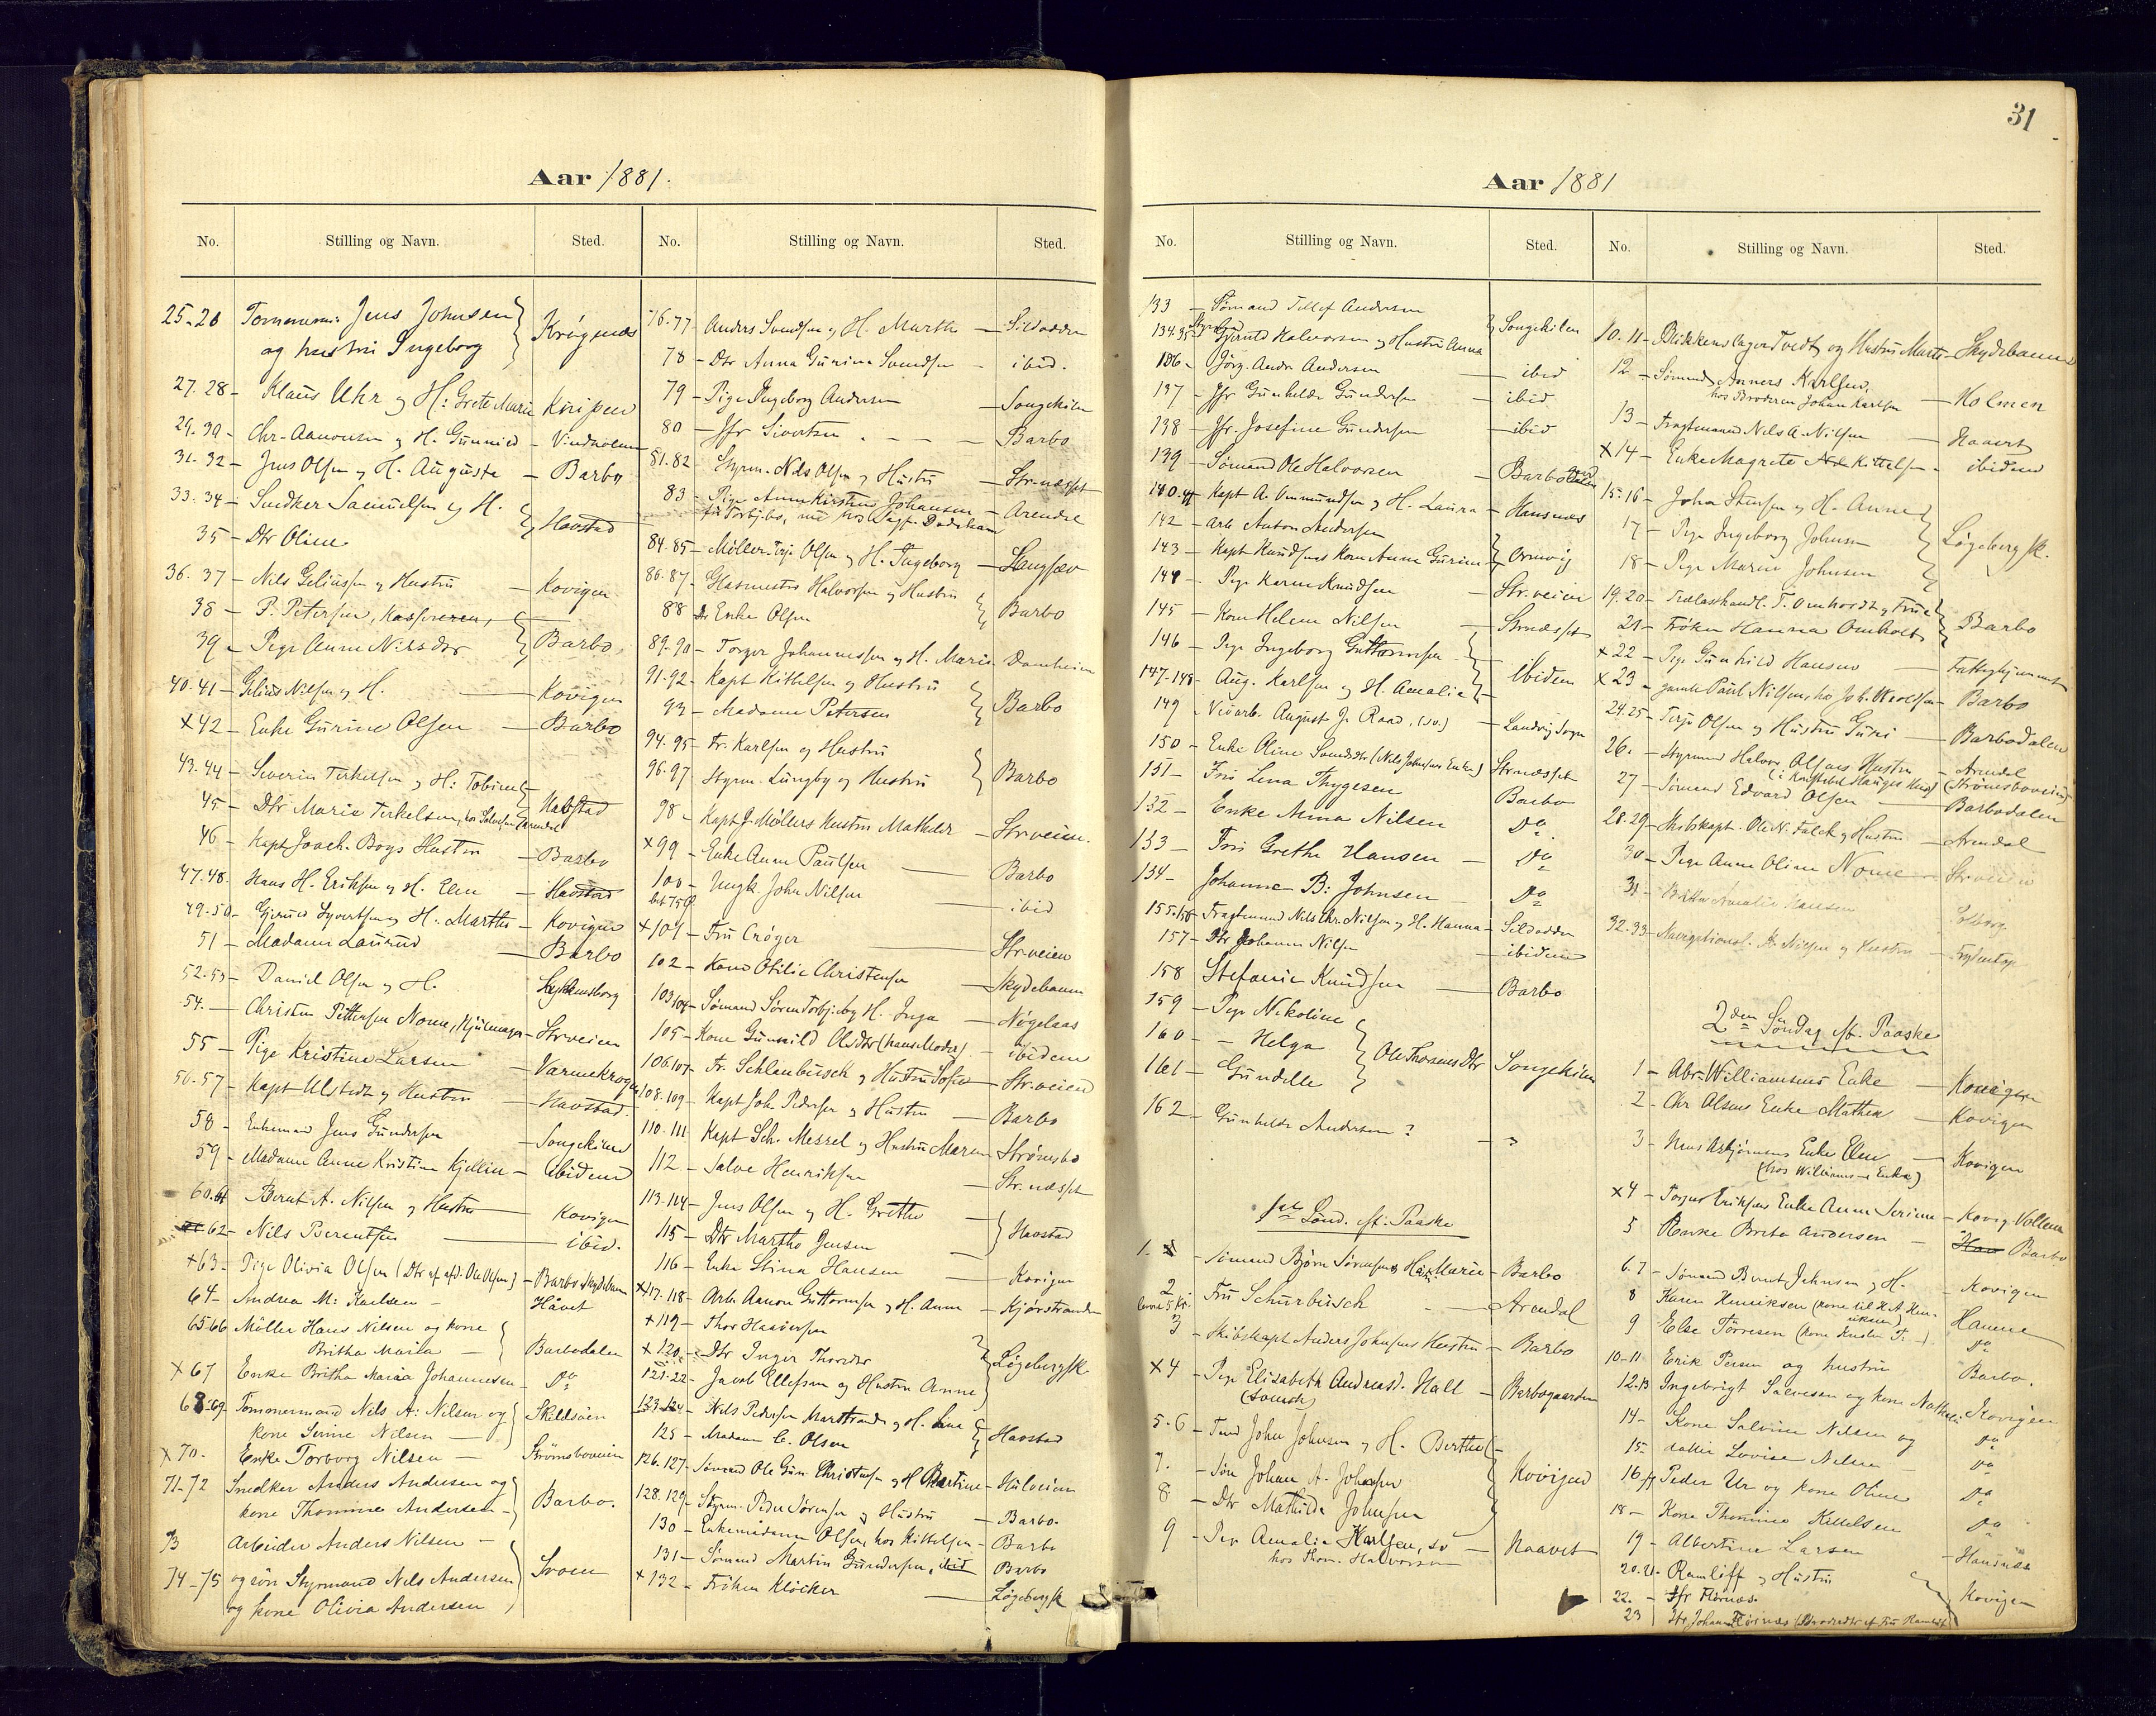 Aar 1881.
No. Stilling og Navn. Sted.
25-26 Jens Johnsen
og hustru Ingeborg Krøgenæs
27.28- Klaus Uhr og H: Grete Marie Knipen
29.30- Chr. Aanonsen og H. Gunnild - Vindholmen
31-32- Jens Olsen og H. Auguste - Barbo
33.34- Snedker Samuelsen og H.
35- Dtr Oline Havstad
36.37- Nils Geliussen og Hustru - Kovigen
38- P. Petersen, Kasserern,
39- Pige Anne Nilsdtr Barbo
40.41- Gelius Nilsen og H. - Kovigen
x42- Enke Gurine Olsen - Barbo
43.44- Severin Terkelsen og H: Tobine
45- Dtr Marie Terkelsen, Havstad
46- Kapt Joach. Boys Hustru - Barbo
47.48. Hans H. Eriksen og H. Elen - Havstad
49.50- Gjerud Syvertsen og H. Marthe - Kovigen
51- Madam Laurud - Barbo
52.53- Daniel Olsen og H. Lykkensborg
54.- Christen Pettersen Noren, Hjulmager - Str.veien
55- Pige Kristine Larsen - Varmekrogen
56-57- Kapt Ulstedt og Hustru - Havstad.
58- Enkemand Jens Gundersen - Songekilen
59- Madam Anne Kristine Kjellin - ibidem
60.61 Bernt A. Nilsen og Hustru - Kovigen
62- Nils Berentsen - ibid.
x63- Pige Olivia Olsen (Dtr af afd. Ole Olsen) - Barbo Skydebanen
64- Andrea M: Karlsen - Håvet
65-66 Møller Hans Nilsen og kone
Britha Maria - Barbodalen
x67 Enke Britha Maria Johannesen - Do
68-69 Tømmermand Nils A: Nilsen og
kone Serine Nilsen - Skilsøen
x70- Enke Torborg Nilsen - Strømsboveien
71-72 Snedker Anders Andersen og
kone Thomine Andersen - Barbo.
73 Arbeider Anders Nilsen -
74-75 og søn Styrmand Nils Andersen
og kone Olivia Andersen
No. Stilling og Navn. Sted.
76.77- Anders Svendsen og H. Marthe - Sildodden
78- Dtr Anna Gurina Svendsen - ibid.
79- Pige Ingeborg Andersen - Songekilen
80- Jfr Sivertsen - Barbo
81.82- Styrm. Nils Olsen og Hustru - Str.næsset
83- Pige Anne Kirstine Johansen - Arendal
84.85- Møller Terje Olsen og H. Ingeborg - Langsæv
86.87- Glasmester Halvorsen og Hustru
88 Enke Olsen Barbo
89.90- Torger Johannessen og H. Marie - Damheien
91.92- Kapt Kittelsen og Hustru
93- Madame Petersen Barbo
94.95- Fr. Karlsen og Hustru
96.97 Styrm. Lungby og Hustru Barbo
98- Kapt J. Møllers Hustru Mathilde - Str.veien.
x99- Enke Anne Paulsen - Barbo
100- Ungk. John Nilsen - ibid
x101- Fru Crøger - Str.veien
102- Kone Otilie Christensen - Skydebanen
103.104- Sømand Søren Torbj. og H. Inga - Nøgelaas
105- Kone Gunnild Olsdtr (hans Moder) - ibidem
106.107- Fr. Schlanbusch og Hustru Sofie - Str.veien
108.109- Kapt Joh. Pedersen og Hustru - Barbo
110.111 Kapt Sch. Messel og Hustru Maren Strømsbo
112- Salve Henriksen - Str.næsset
113.114- Jens Olsen og H. Grethe
115- Dtr Marthe Jensen Havstad
116- Enke Stina Hansen - Kovigen
x117.118- Arb. Aanon Guttormsen og H. Anne - Kjørstranden
x119- Thor Haavorsen
x120- Dtr Inger Thorsdtr Løgebergsk
121-22- Jacob Ellefsen og Hustru Anne
123-124- Nils Pedersen Marstrand og H. Lina
125- Madam C. Olsen Havstad
126.127- Sømand Ole Gun. Christensen og H Bertine - Hulveien
128.129- Styrm. Peder Sørensen og Hustru - Barbo.
130- Enkemadame Olsen, hos Kittelsen - Barbo
131- Sømand Martin Gundersen, ibid Barbo
x132- Frøken Kløcker - Løgebergsk
31
Aar 1881
No. Stilling og Navn. Sted.
133- Sømand Tellef Andersen
134.35 Gjeruld Halvorsen og Hustru Anna Songekilen
136- Jørg. Andr. Andersen - ibid
137- Jfr Gunhilde Gundersen - ibid
138- Jfr. Josefine Gundersen - ibid
139- Sømand Ole Halvorsen - Barbodalen
140.41 Kapt A. Ommundsen og H. Laura - Hansnæs
142- Arb Anton Andersen
143- Kapt Knudsens Kone Anne Gurine Ormvig
144- Pige Karen Knudsen - Str.veien
145- Kone Helene Nilsen - Strnæsset
146- Pige Ingeborg Guttormsen
147-148- Aug. Karlsen og H. Amalie ibidem
149- August J. Raad, (sv.) - Landvig Sogn
150- Enke Oline Svendsdtr (Nils Johnsens Enke) Strnæsset
151- Fru Lena Thygesen Barbo
152- Enke Anna Nilsen Do
153- Fru Grethe Hansen - Do
154- Johanne B: Johnsen Do
155.156 Fragtemand Nils Chr. Nilsen og H. Hanna - Sildodden
157- Dtr Johanne Nilsen - ibidem
158 Stefanie Knudsen - Barbo
159- Pige Nikoline
160- - Helga Ole Thomes Dtr Songekilen
161- Gundelle
162- Gunhilde Andersen? - -
1ste Sønd. eft. Paaske
1. Sømand Bjørn Sørensen og H. Marie - Barbo
2 Fru Schurbusch - Arendal
3- Skibskapt Anders Johnsens Hustru - Barbo
x4- Pige Elisabeth Andreasd. Hall - Barbogaarden
(svensk)
5.6- John Johnsen og H. Berthe
7.- Søn Johan A. Johnsen
8- Dtr Mathilde Johnsen Kovigen
9- Pige Amalie Karlsen, sv - Haavet
hos Thom. Halvorsen
No. Stilling og Navn. Sted.
10.11- Blikkenslager Tvedt og Hustru Marte - Skydebanen
12- Sømand Anners Karlsen,
hos Broderen Johan Karlsen - Holmen
13- Fragtemand Nils A. Nilsen - Haavet
x14- Enke Magrete Kittelsen - ibidem
15-16- Johan Stensen og H. Anne
17- Pige Ingeborg Johnsen Løgebergsk.
18- Pige Maren Johnsen
19.20- Trælasthandl. T. Omholdt og Frue
21- Frøken Hanna Omholt Barbo
x22- Pige Gunhild Hansen - Fattighjemmet
x23- gamle Paul Nilsen, hos Barbo
24.25- Terje Olsen og Hustru Guri - Barbodalen
26.- Styrmand Halvor Olsens Hustru - Arendal
27- Sømand Edvard Olsen - Barbodalen
28-29- Skibskapt. Ole N. Falck og Hustru - Arendal
30- Pige Anne Oline Nome - Str.veien
31- Amalie Hansen
32.33- Navigationsl. Nilsen og Hustru - Frydentop
2den Søndag eft. Paaske
1- Abr. Williamsens Enke - Kovigen
2- Chr Olsens Enke Mathea - Kovigen
3- Asbjørnsens Enke Elen
(hos Williamsens Enke) - Kovigen
x4- Torjus Eriksens Enke Anne Serine - Kovig. Vollene
5 Brita Andersen - Barbo
6.7- Sømand Bernt Johnsen og H. - Kovigen
8 Karen Henriksen (kone til H. A. Hen-
riksen) Hanne
9 Else Tørresen (kone T.) Do
10-11 Erik Persen og hustru Barbo.
12.13 Ingebrigt Salvesen og kone Nathalie Kovigen
14- Kone Salvine Nilsen og Do
15- datter Lovise Nilsen - Do
16.17 Peder Ur og kone Oline Do
18- Kone Thomine Kittelsen Do
19- Albertine Larsen - Hansnæs
20.21- Ramliff og Hustru
22.- Jfr Flørnæs Kovigen
23